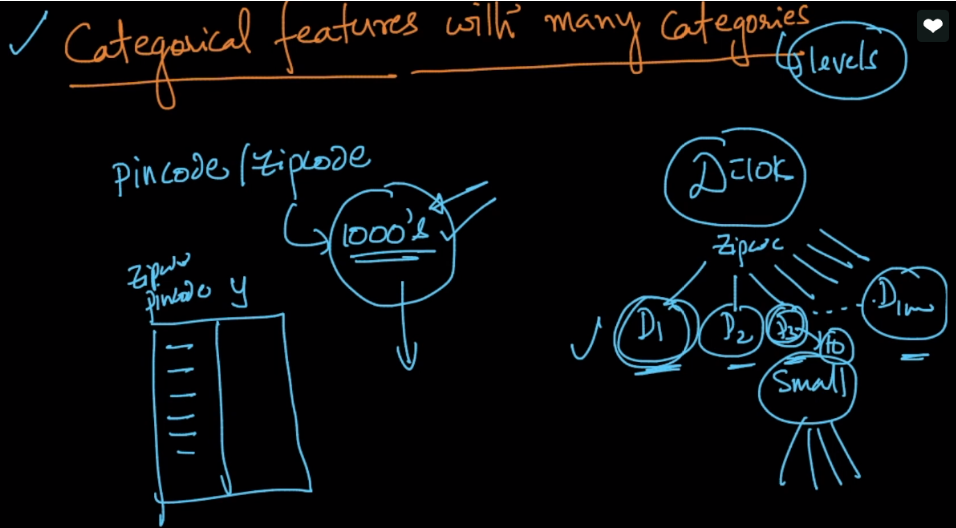 Categorical features with many Categories
levels
Pincode/Zipcode
1000's
D=10K
Zipcode
Pincode Y
D1 D2 D3
10
Small